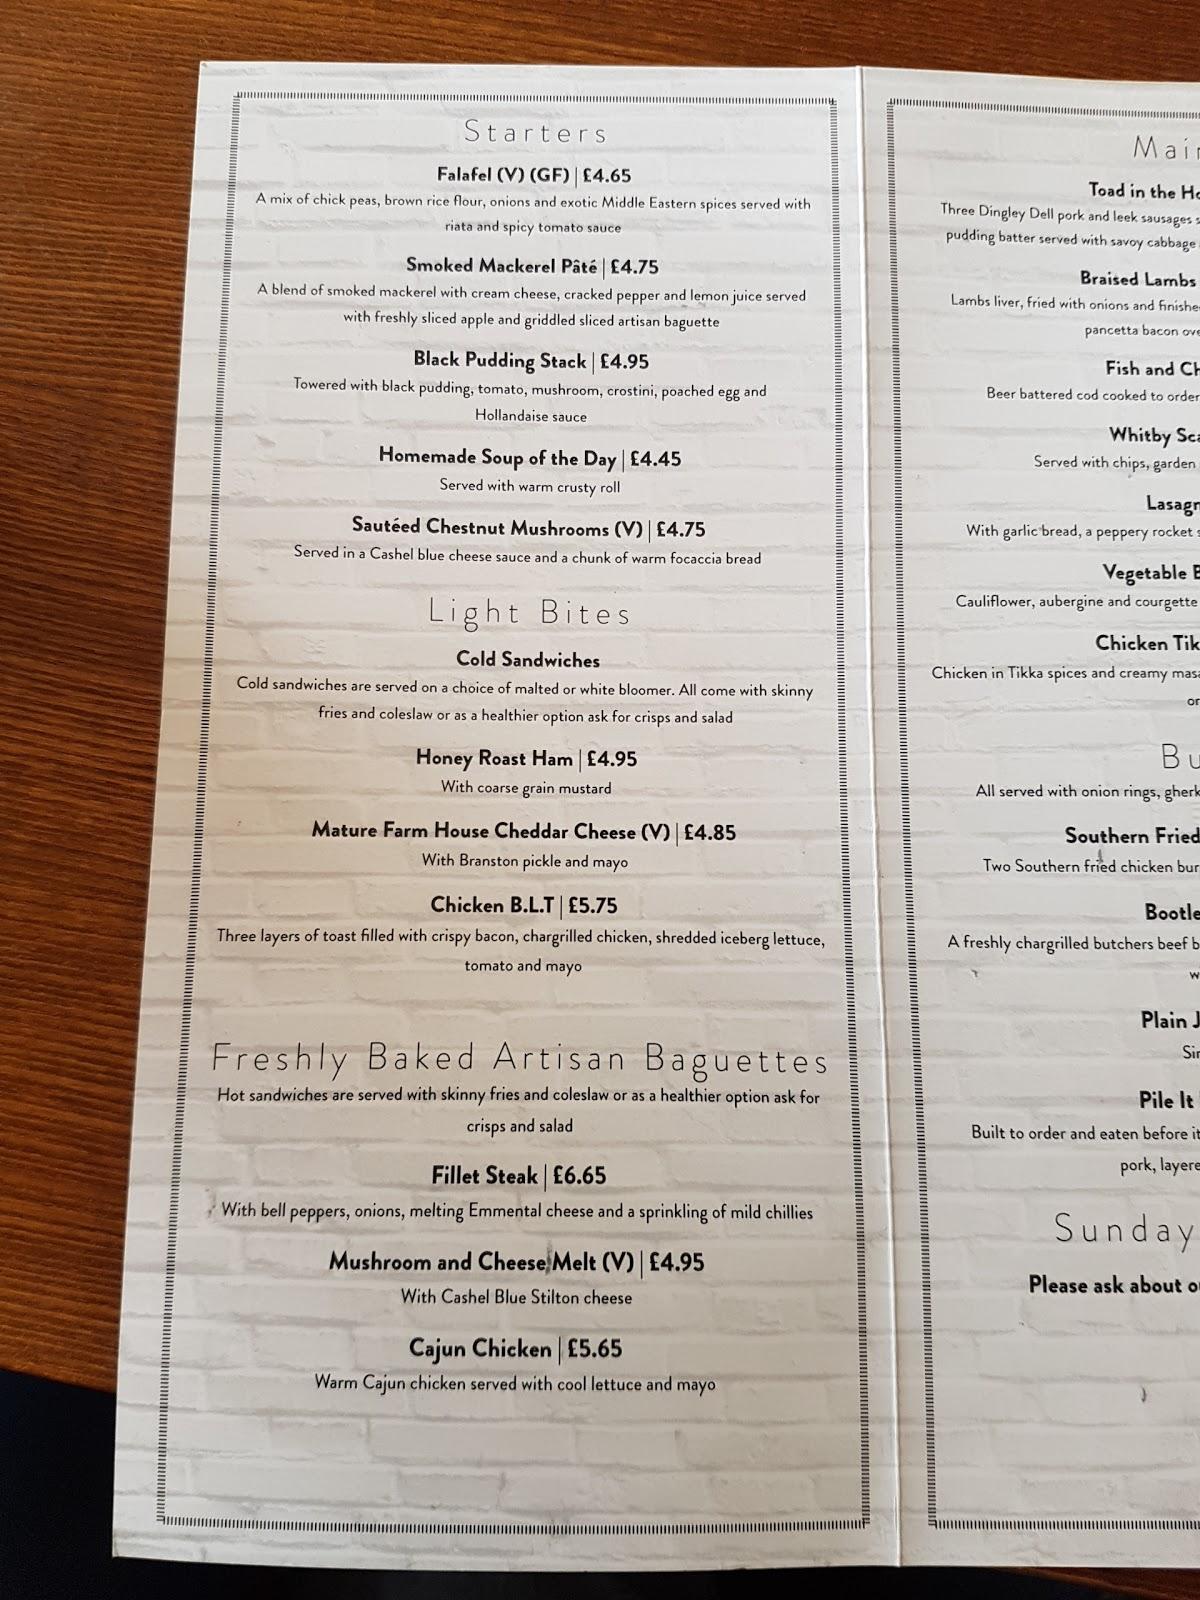 Starters
Falafel (V) (GF) | £4.65
A mix of chick peas, brown rice flour, onions and exotic Middle Eastern spices served with
riata and spicy tomato sauce
Smoked Mackerel Pâté | £4.75
A blend of smoked mackerel with cream cheese, cracked pepper and lemon juice served
with freshly sliced apple and griddled sliced artisan baguette
Black Pudding Stack | £4.95
Towered with black pudding, tomato, mushroom, crostini, poached egg and
Hollandaise sauce
Homemade Soup of the Day | £4.45
Served with warm crusty roll
Sautéed Chestnut Mushrooms (V) | £4.75
Served in a Cashel blue cheese sauce and a chunk of warm focaccia bread
Light Bites
Cold Sandwiches
Cold sandwiches are served on a choice of malted or white bloomer. All come with skinny
fries and coleslaw or as a healthier option ask for crisps and salad
Honey Roast Ham | £4.95
With coarse grain mustard
Mature Farm House Cheddar Cheese (V) | £4.85
With Branston pickle and mayo
Chicken B.L.T | £5.75
Three layers of toast filled with crispy bacon, chargrilled chicken, shredded iceberg lettuce,
tomato and mayo
Freshly Baked Artisan Baguettes
Hot sandwiches are served with skinny fries and coleslaw or as a healthier option ask for
crisps and salad
Fillet Steak | £6.65
With bell peppers, onions, melting Emmental cheese and a sprinkling of mild chillies
Mushroom and Cheese Melt (V) | £4.95
With Cashel Blue Stilton cheese
Cajun Chicken | £5.65
Warm Cajun chicken served with cool lettuce and mayo
Toad in the
Three Dingley Dell pork and leek sausages
pudding batter served with savoy cabbage
Braised Lambs
Lambs liver, fried with onions and
pancetta bacon
Fish and
Beer battered cod cooked to order
Whitby
Served with chips, garden
With garlic bread, a peppery rocket
Vegetable
Cauliflower, aubergine and courgette
Chicken
Chicken in Tikka spices and creamy
All served with onion rings,
Southern Fried
Two Southern fried chicken
A freshly chargrilled butchers beef
Plain
Pile It
Built to order and eaten before
pork,
Sunday
Please ask about